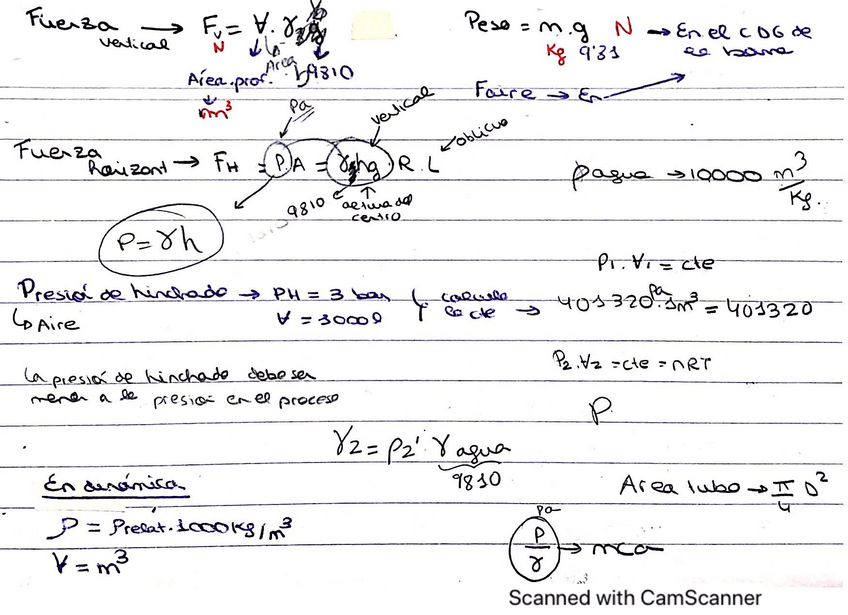 Fuerza vertical → Fv = V. γ
N
Area
Área.prof. 9810
m³
Peso = m.g N → En el CDG de
Kg 9'81
Faire → En
Pa
vertical
Fuerza Horizont → FH = P.A = γ hg . R. L
oblicuo
9810 altura del centro
P = γh
ρagua → 10000 m³/Kg.
P1. V1 = cte
Presión de hinchado → PH = 3 bar
↳ Aire V = 1000l
calcular la cte → 401320 Pa . 1m³ = 401320
P2. V2 = cte = nRT
La presión de hinchado debe ser
menor a la presión en el proceso
P.
γ2 = ρ2' γ agua
9810
En dinámica
Area tubo → π/4 D²
ρ = ρrelat. 1000 Kg/m³
V = m³
Pa
P/γ → mca
Scanned with CamScanner